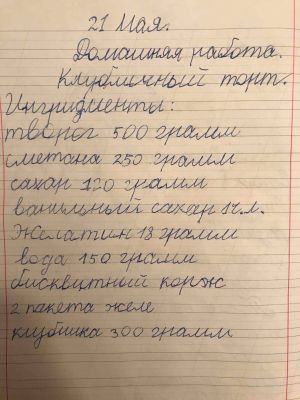 21 Мая.
Домашняя работа.
Клубничный торт.
Ингридиенты:
творог 500 грамм
сметана 250 грамм
сахар 120 грамм
ванильный сахар 1ч.л.
желатин 18 грамм
вода 150 грамм
бисквитный корж
2 пакета желе
клубника 300 грамм